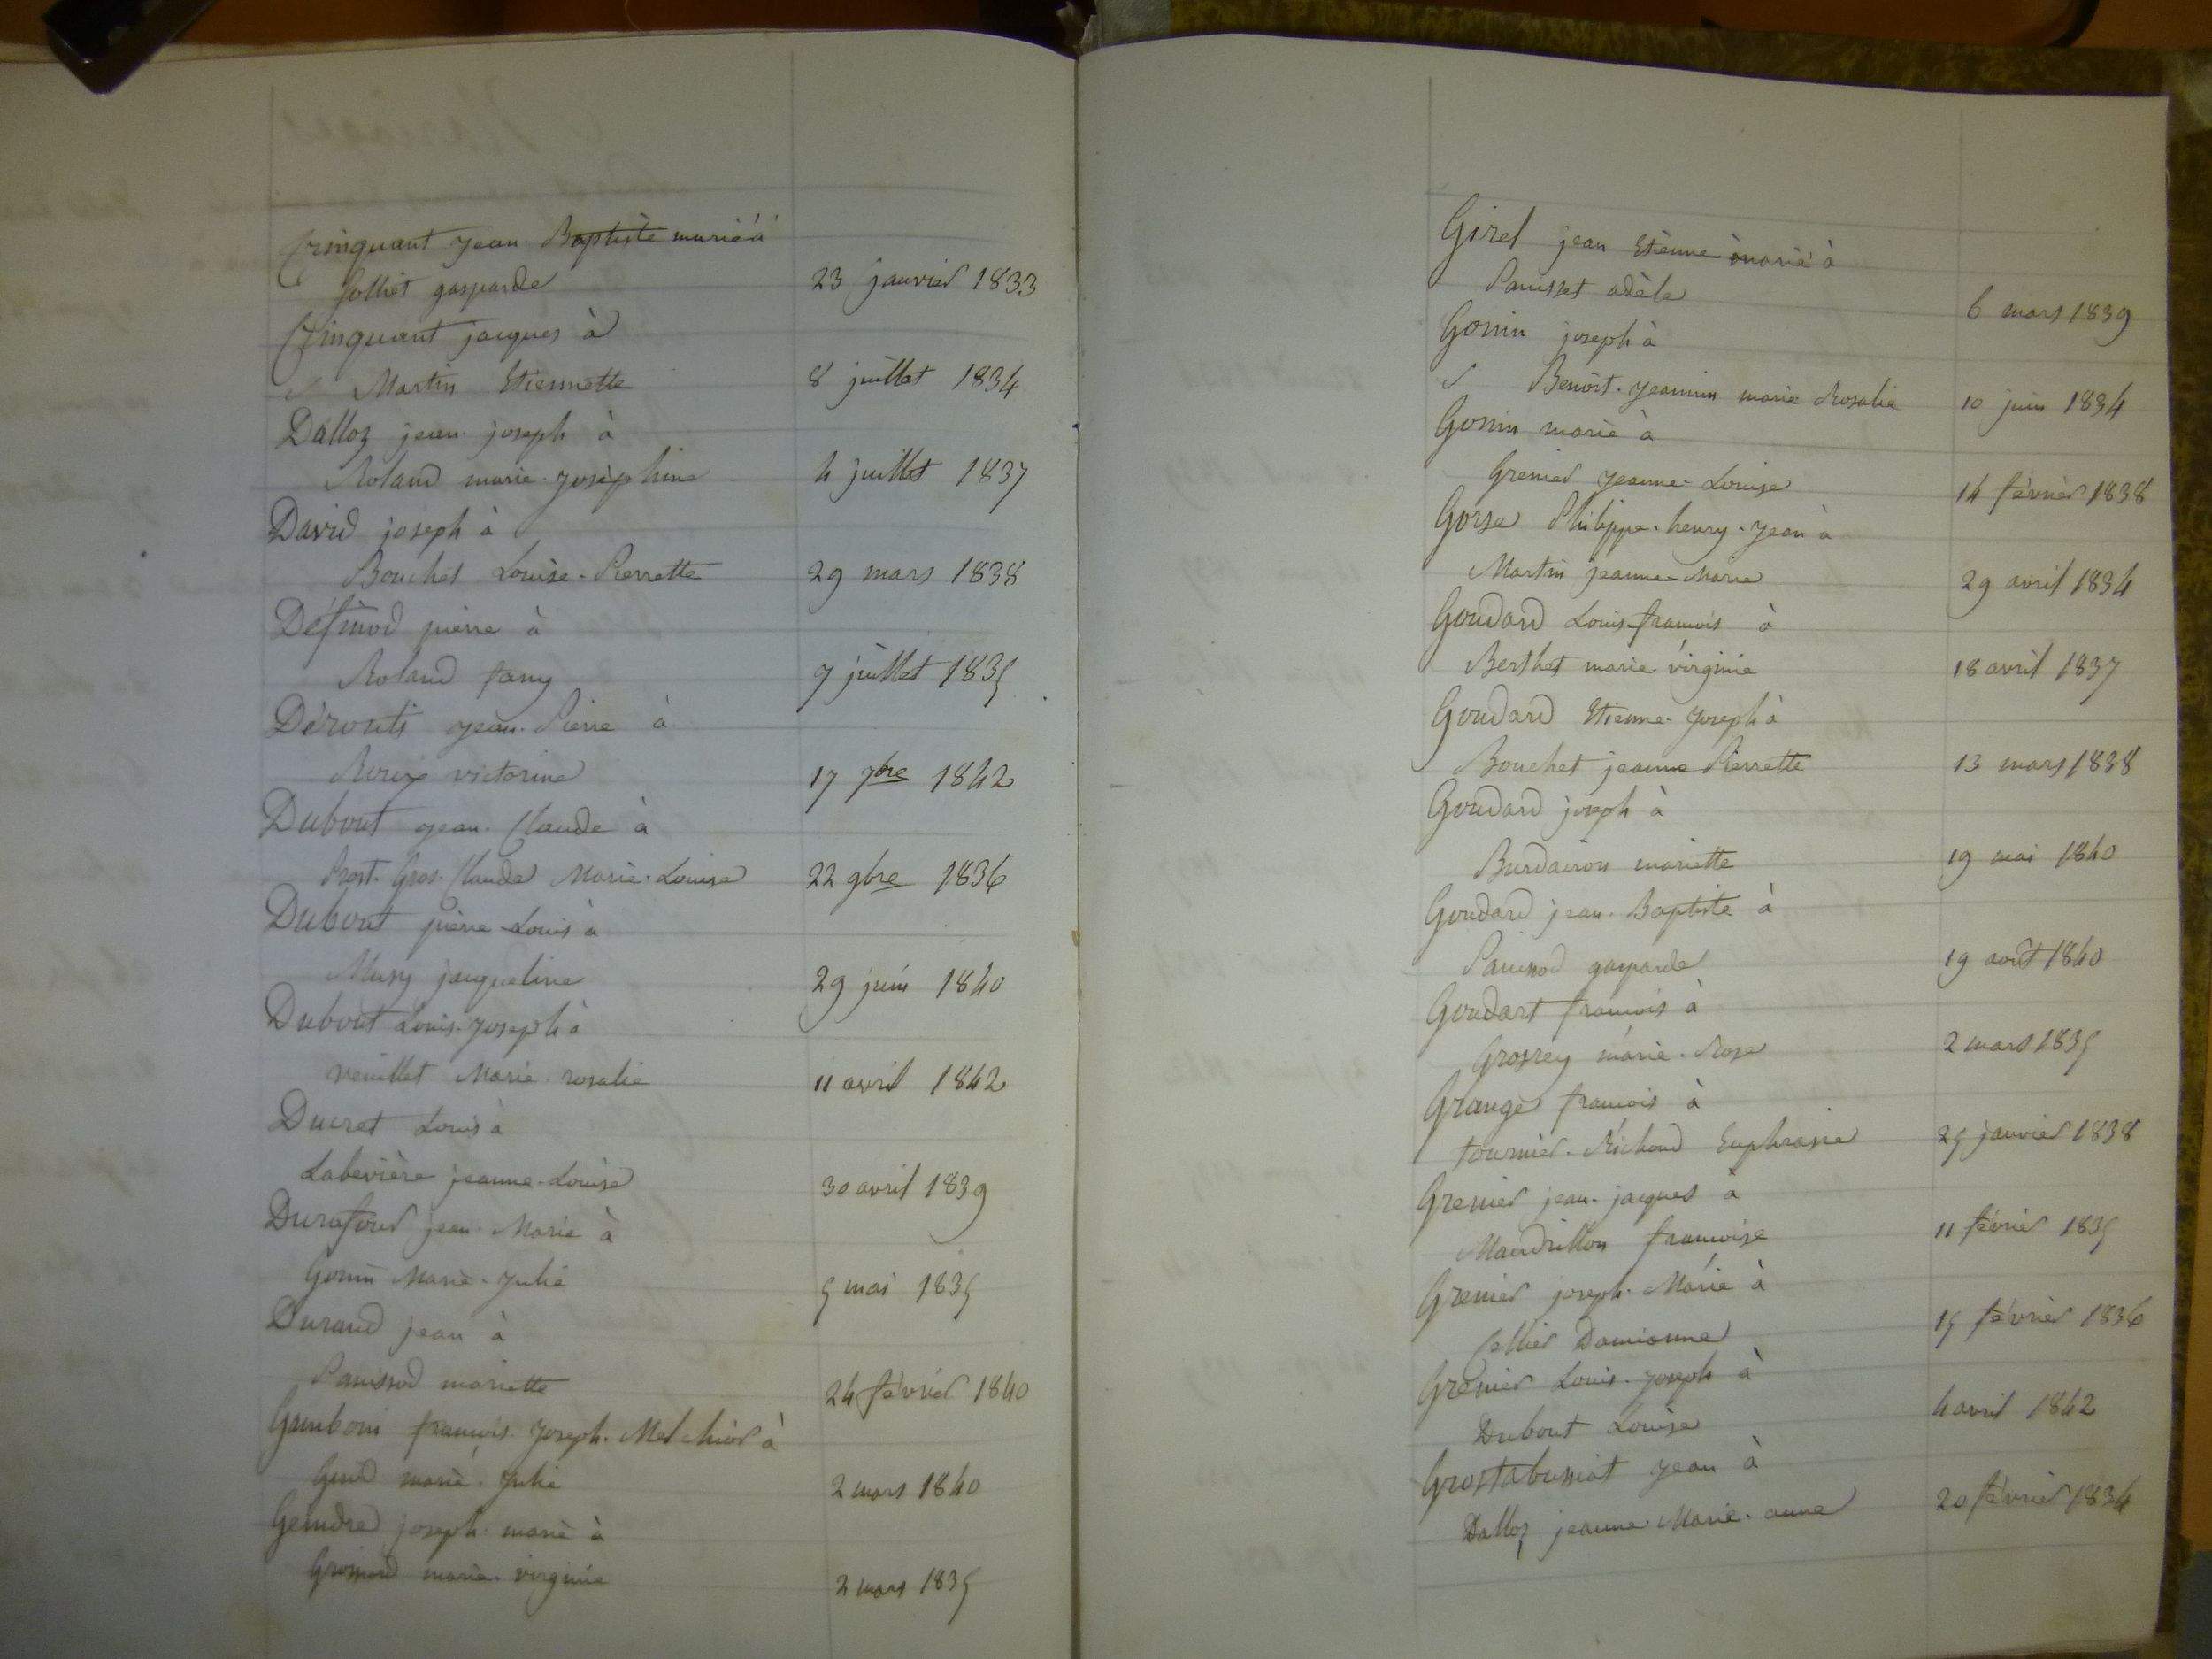 Crinquant jean Baptiste marié à
Jolliet gasparde 23 janvier 1833
Crinquant jacques à
Martin Etiennette 8 juillet 1834
Dalloz jean joseph à
Roland marie joséphine 4 juillet 1837
David joseph à
Bouchet Louise-Pierrette 29 mars 1838
Définod pierre à
Roland fany 7 juillet 1835
Déronts jean-Pierre à
Roux victorine 17 7bre 1842
Dubout jean Claude à
Prost-Gros-Claude Marie-Louise 22 9bre 1836
Dubout pierre Louis à
Musy jacqueline 29 juin 1840
Dubout Louis-joseph à
veuillet Marie rosalie 11 avril 1842
Ducret Louis à
Labevière jeanne-Louise 30 avril 1839
Durafour jean Marie à
Gonin Marie-Julie 5 mai 1835
Durand jean à
Panissod mariette 24 février 1840
Gamboni francois-joseph-Melchior à
marie Julie 2 mars 1840
Geindre joseph marie à
marie virginie 2 mars 1835
Girel jean Etienne marié à
Panisset adèle 6 mars 1839
Gonin joseph à
Benoist-Jeannin marie Rosalie 10 juin 1834
Gonin marie à
Grenier jeanne-Louise 14 février 1838
Gorse Philippe-henry-jean à
Martin jeanne-Marie 29 avril 1834
Goudard Louis-francois à
Berthet marie virginie 18 avril 1837
Goudard Etienne-joseph à
Bouchet jeanne Pierrette 13 mars 1838
Goudard joseph à
Burdairon mariette 19 mai 1840
Goudard jean Baptiste à
Panissod gasparde 19 août 1840
Goudart francois à
Grosrey marie-Rose 2 mars 1835
Grange francois à
tournier-Richoud Euphrasie 25 janvier 1838
Grenier jean-jacques à
Mandrillon francoise 11 février 1835
Grenier joseph-Marie à
Cellier Damienne 15 février 1836
Grenier Louis-joseph à
Dubout Louise 4 avril 1842
Grostabussiat jean à
Dalloz jeanne-Marie-anne 20 février 1834